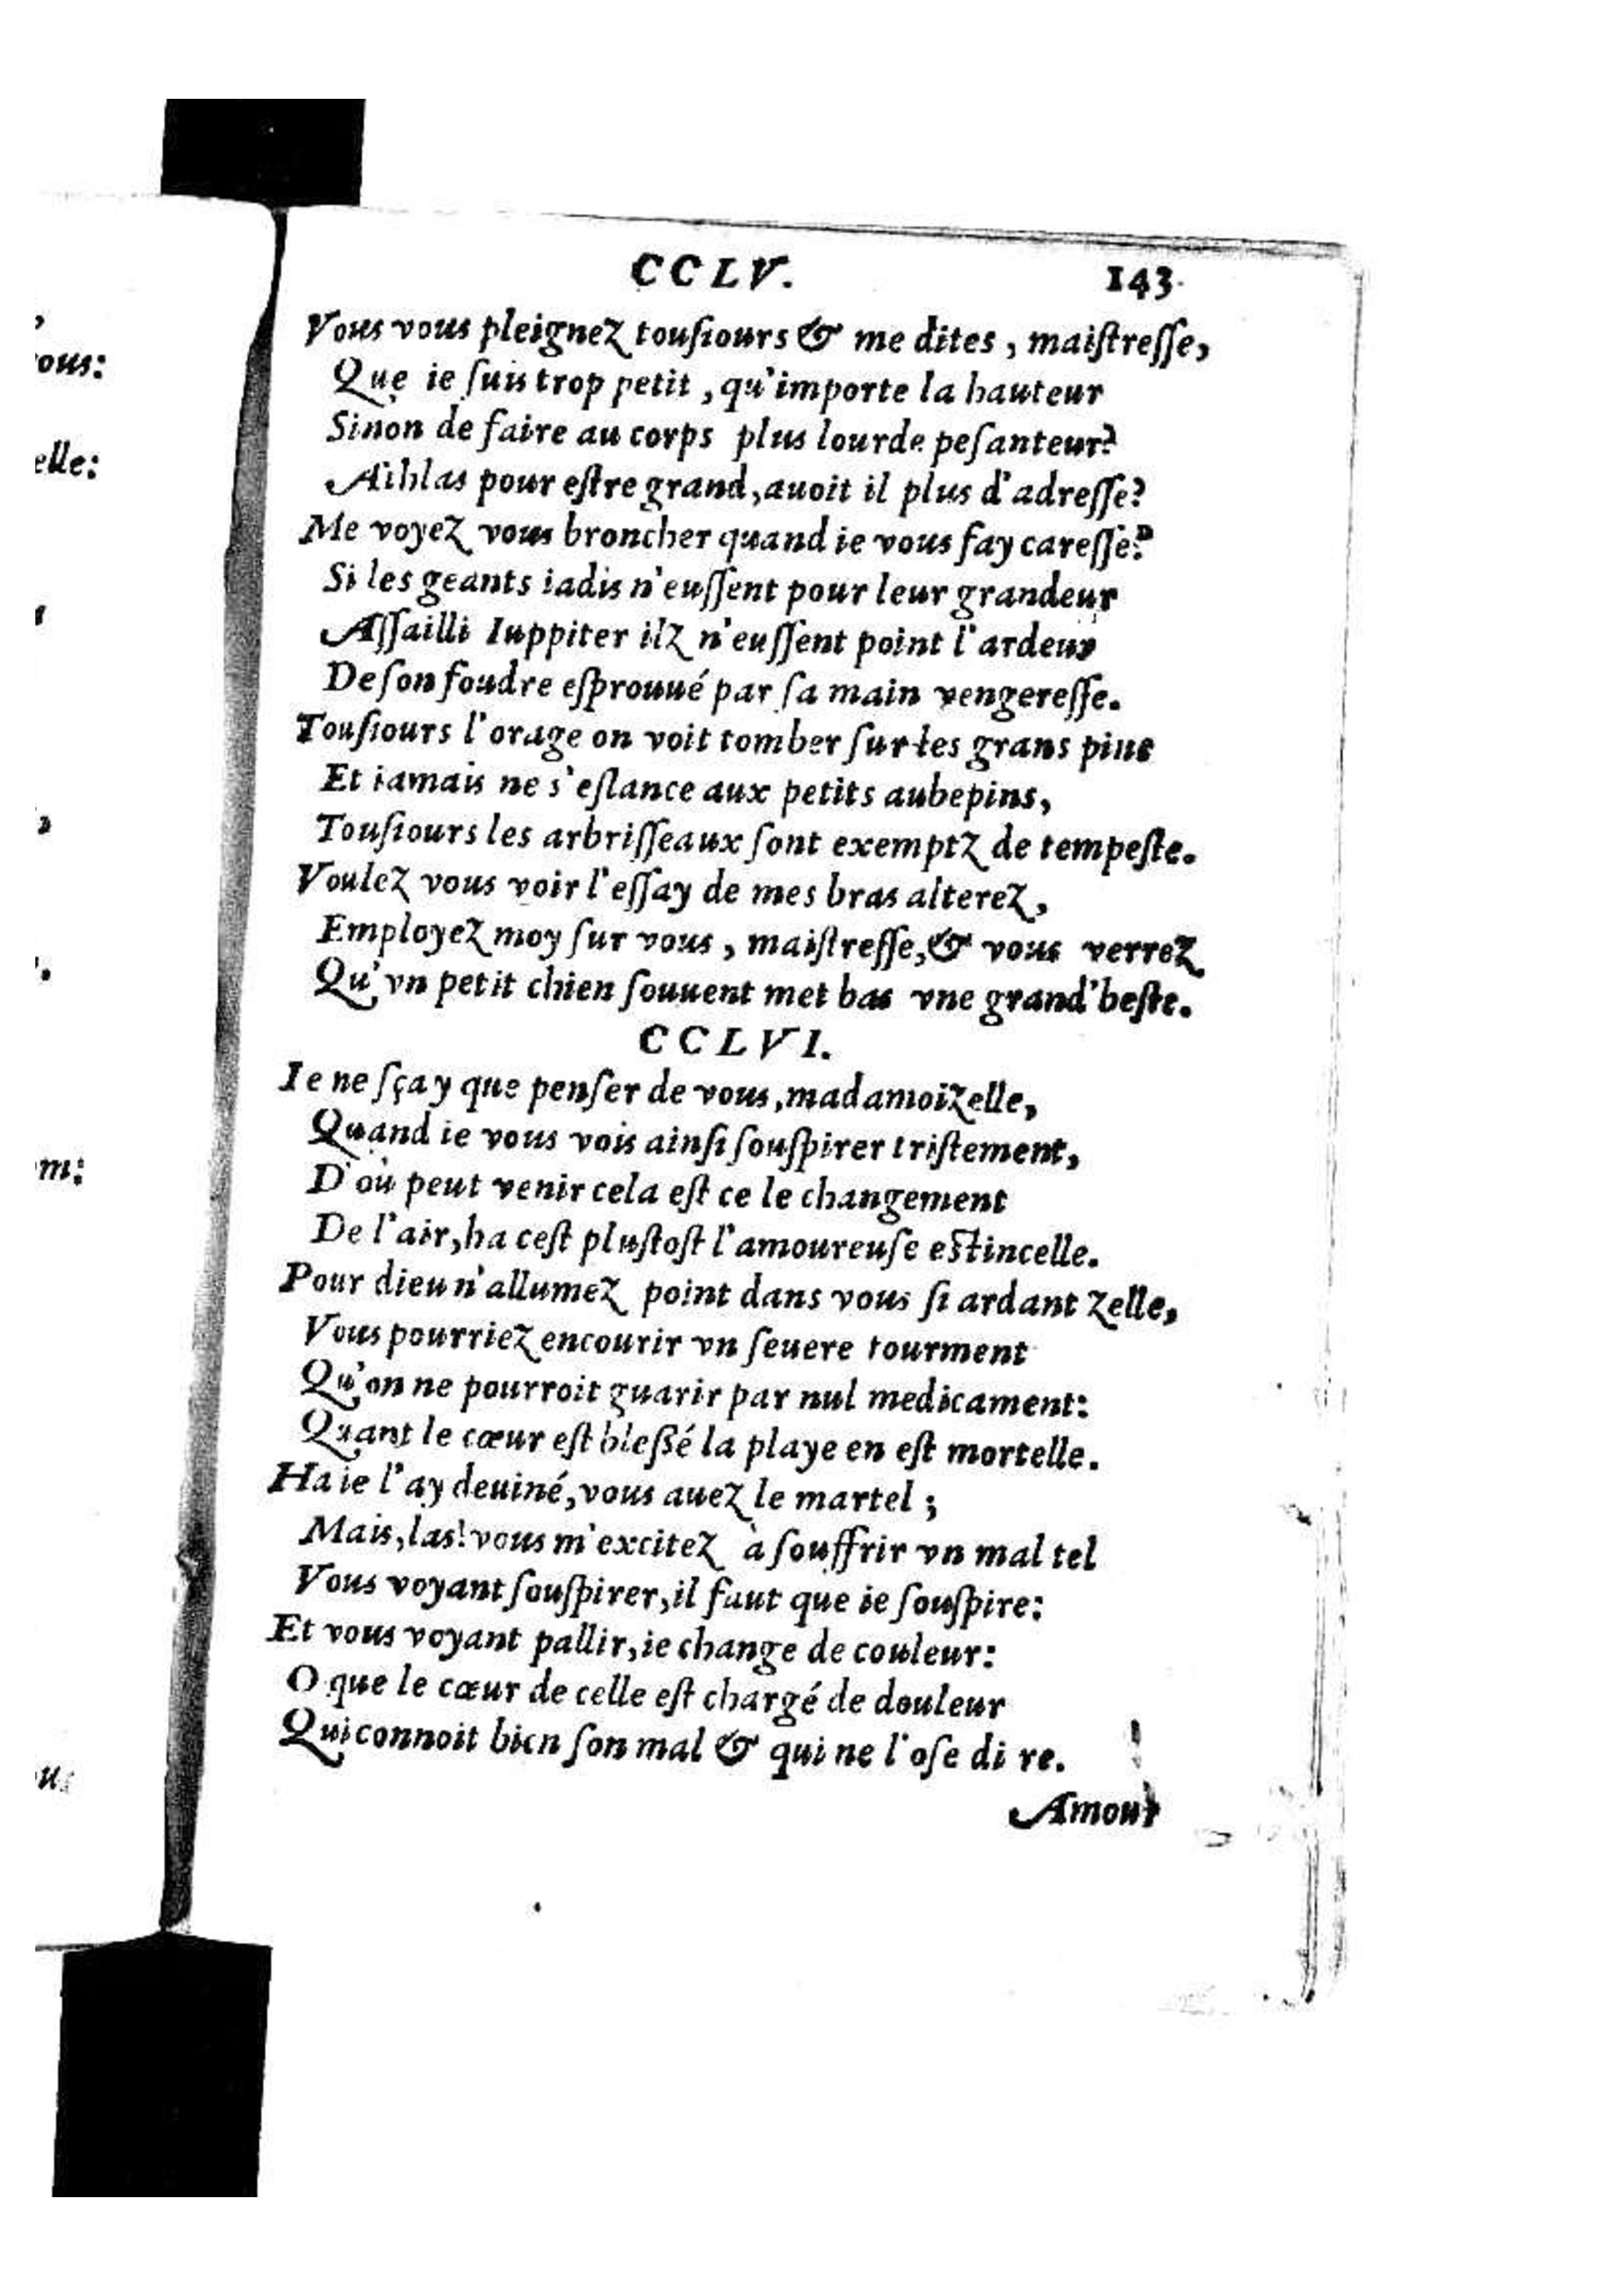 CCLV. 143.
Vous vous pleignez tousiours & me dites, maistresse,
Que ie suis trop petit, qu'importe la hauteur
Sinon de faire au corps plus lourde pesanteur?
Athlas pour estre grand, auoit il plus d'adresse?
Me voyez vous broncher quand ie vous fay caresse?
Si les geants iadis n'eussent pour leur grandeur
Assailli Iuppiter ilz n'eussent point l'ardeur
De son foudre esprouué par sa main vengeresse.
Tousiours l'orage on voit tomber sur les grans pins
Et iamais ne s'eslance aux petits aubepins,
Tousiours les arbrisseaux sont exemptz de tempeste.
Voulez vous voir l'essay de mes bras alterez,
Employez moy sur vous, maistresse, & vous verrez
Qu'vn petit chien souuent met bas vne grand'beste.
CCLVI.
Ie ne sçay que penser de vous, madamoizelle,
Quand ie vous vois ainsi souspirer tristement,
D'où peut venir cela est ce le changement
De l'air, ha cest plustost l'amoureuse estincelle.
Pour dieu n'allumez point dans vous si ardant zelle,
Vous pourriez encourir vn seuere tourment
Qu'on ne pourroit guarir par nul medicament:
Quant le cœur est blessé la playe en est mortelle.
Ha ie l'ay deuiné, vous auez le martel;
Mais, las! vous m'excitez à souffrir vn mal tel
Vous voyant souspirer, il faut que ie souspire:
Et vous voyant pallir, ie change de couleur:
O que le cœur de celle est chargé de douleur
Qui connoit bien son mal & qui ne l'ose di re.
Amour
ous:
elle:
m: